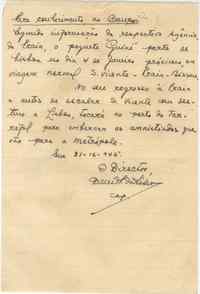 Para conhecimento do
Segundo informação da respectiva Agência,
da Praia, o paquete Guiné parte de
Lisboa no dia 4 de Janeiro próximo, em
viagem normal S. Vicente - Praia - Bissau.
No seu regresso à Praia
e antes de escalar S. Vicente com des-
tino a Lisboa, tocará no porto do Tar-
rafal para embarcar os amnistiados que
vão para a metrópole.
31-12-945
O Director,